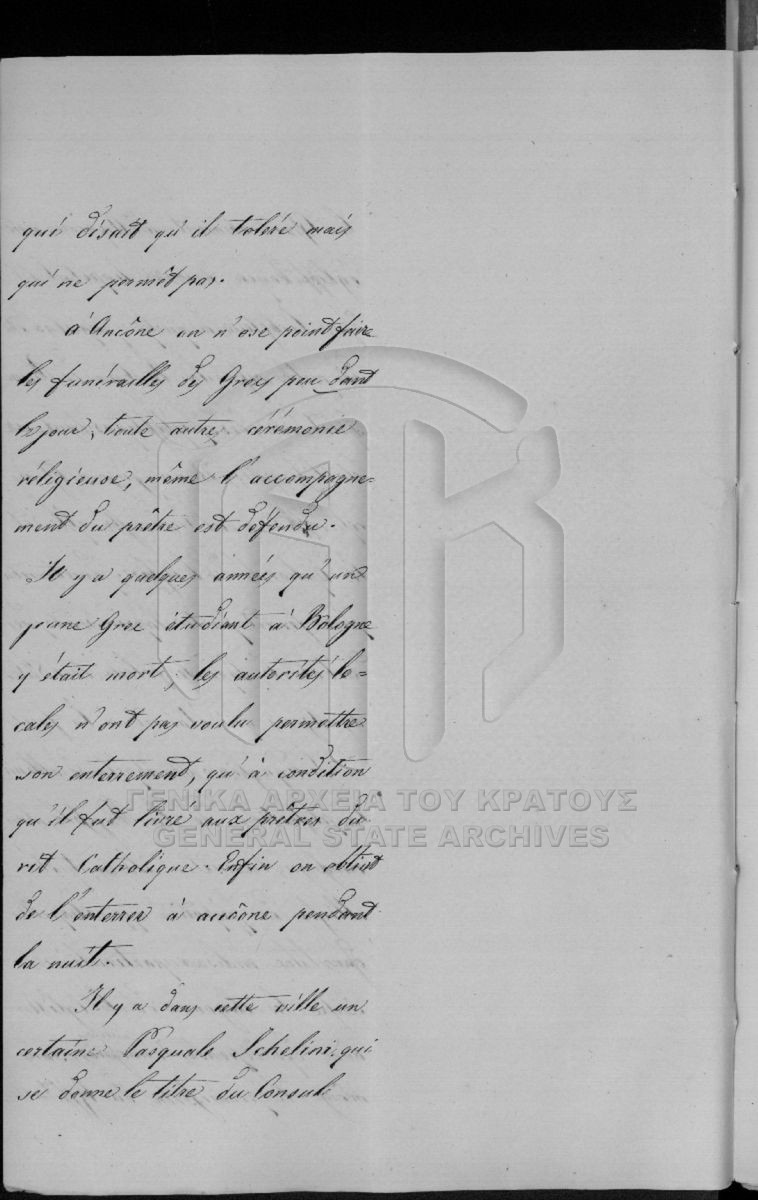 qui disait qu'il tolére mais
qui ne permêt pas.
à Ancône on n'ose point faire
les funérailles des Grecs pendant
le jour; toute autre cérémonie
réligieuse, même l'accompagne=
ment du prêtre est défendu.
Il y a quelques années qu'un
jeune Grec étudiant à Bologne
y était mort; les autorités lo=
cales n'ont pas voulu permettre
son enterrement, qu'à condition
qu'il fut livré aux prêtres du
rit Catholique. Enfin on obtint
de l'enterrer à ancône pendant
la nuit.
Il y a dans cette ville un
certain Pasquale Schelini, qui
se donne le titre du Consul
ΓΕΝΙΚΑ ΑΡΧΕΙΑ ΤΟΥ ΚΡΑΤΟΥΣ
GENERAL STATE ARCHIVES